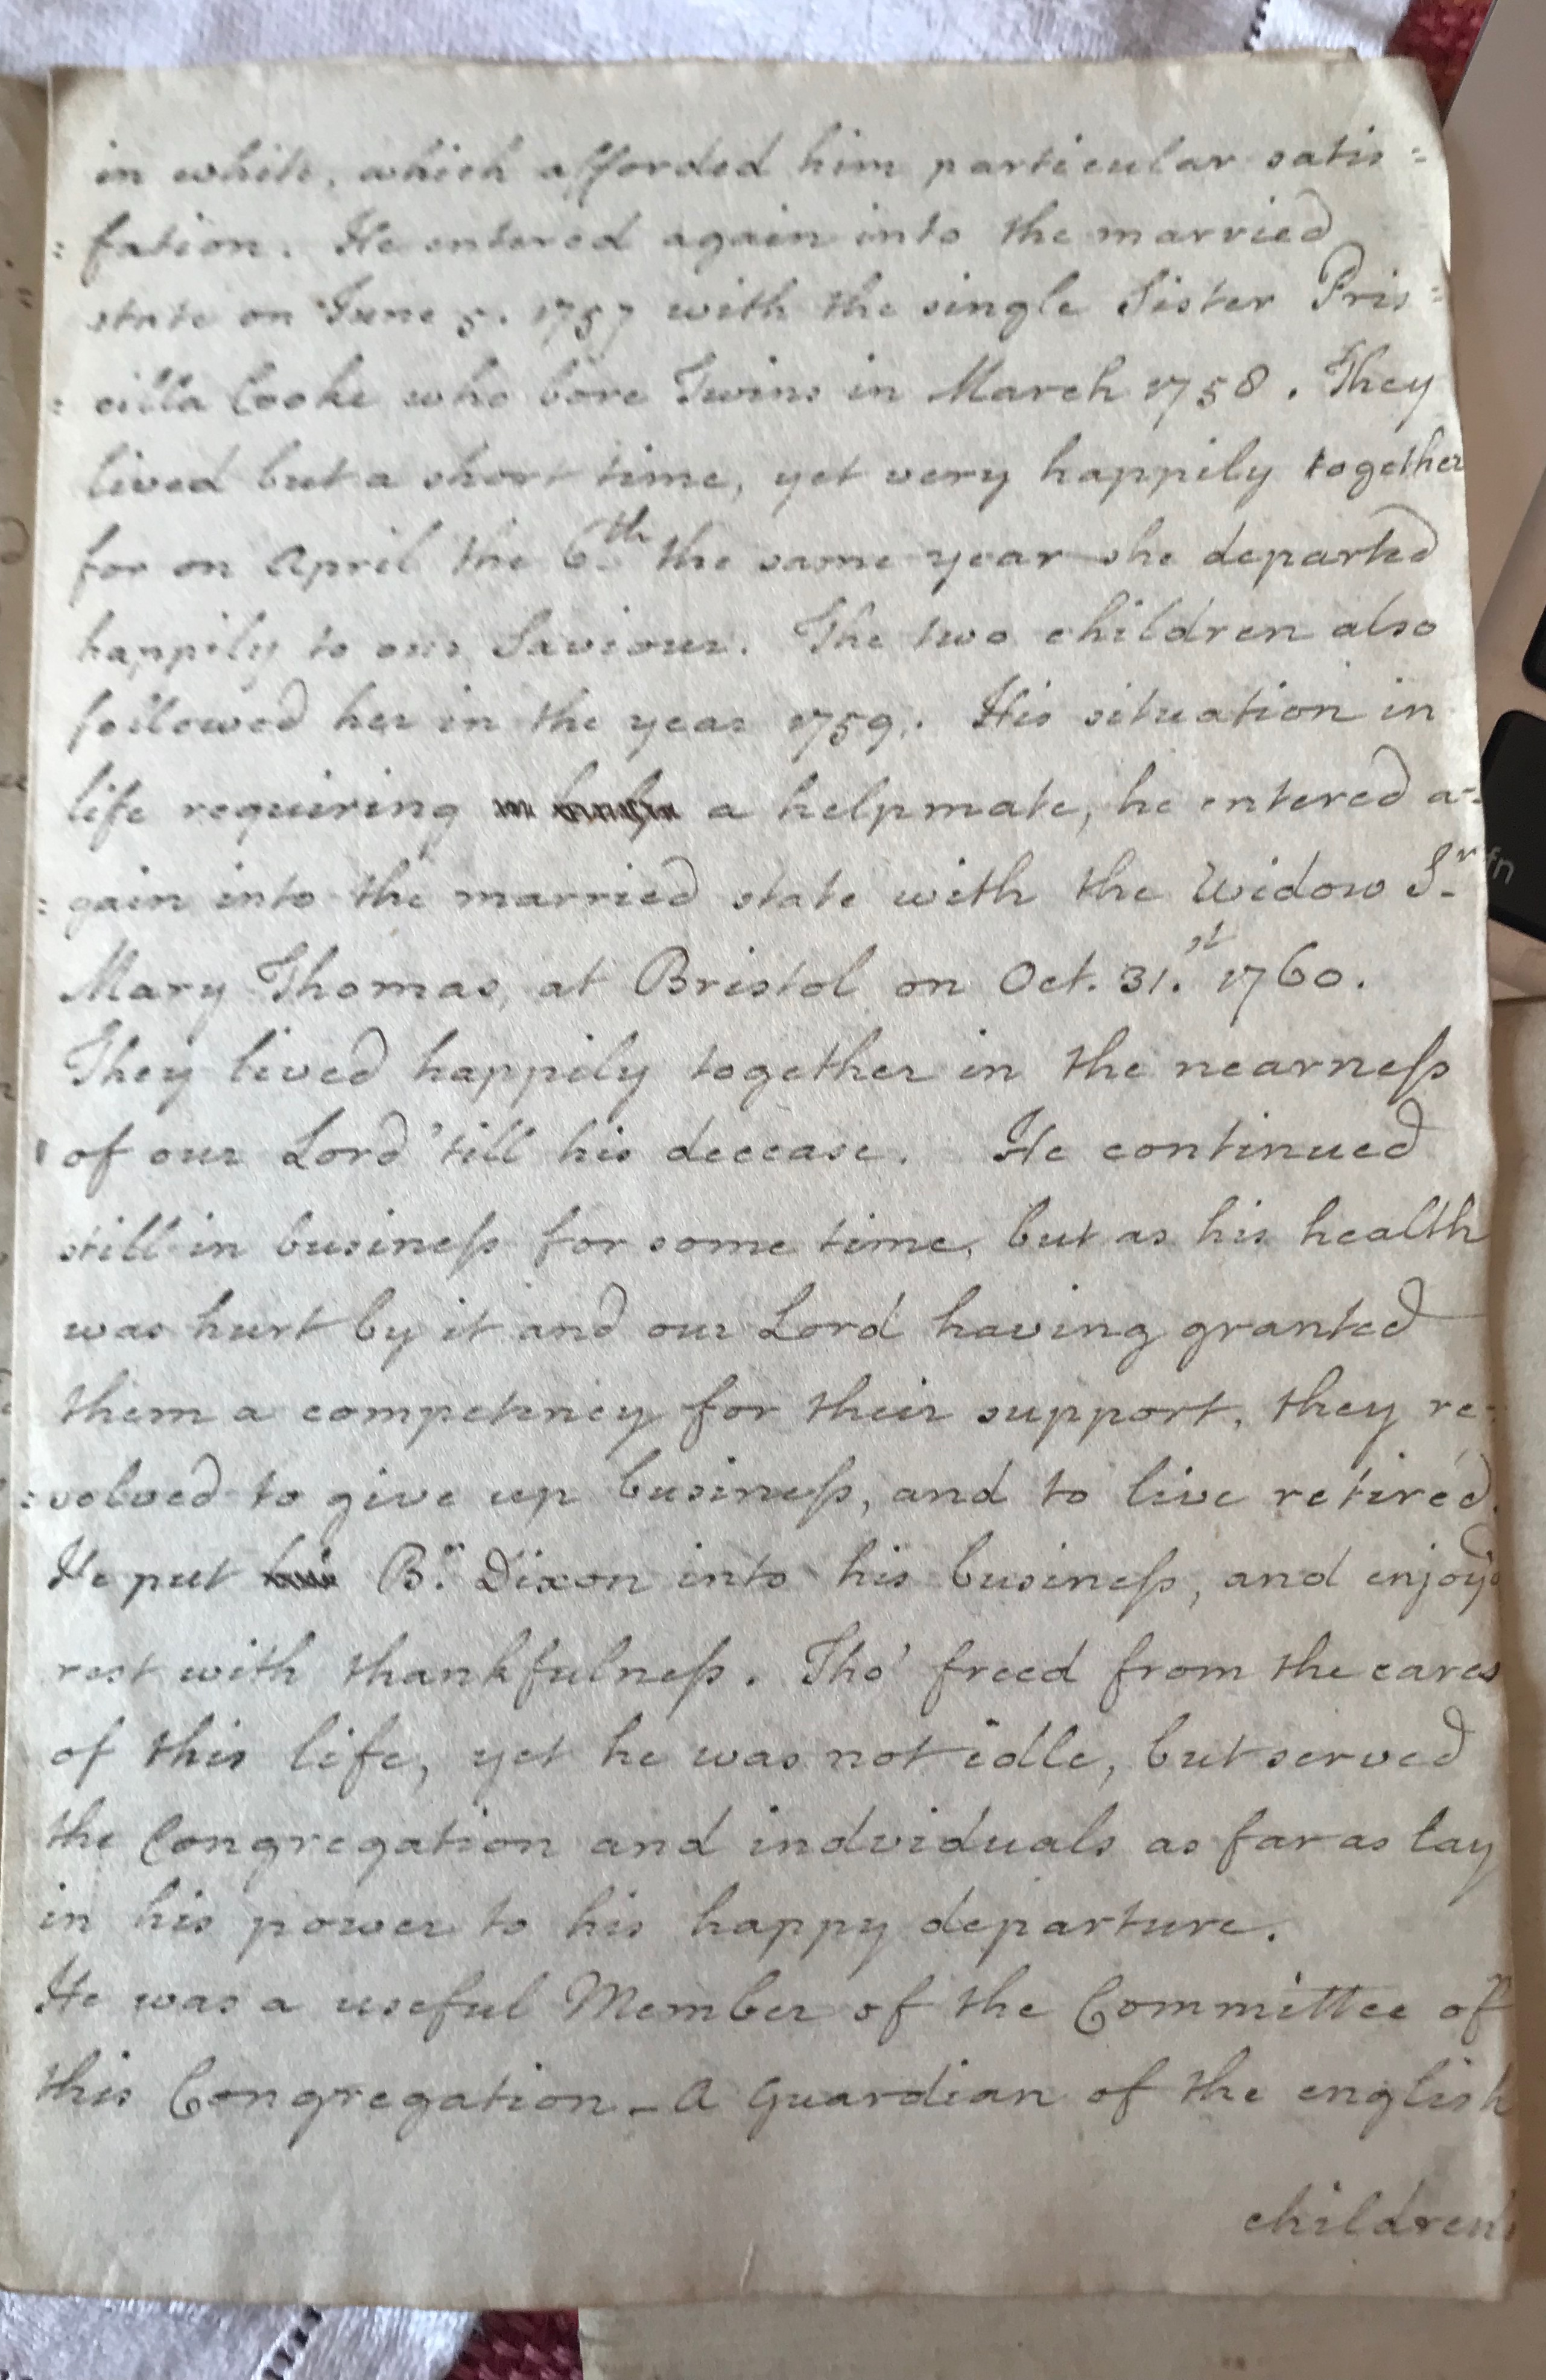 in white, which afforded him particular satis=
=fation. He entered again into the married
state on June 5. 1757 with the single Sister Pris=
=cilla Cooke who bore Twins in March 1758. They
lived but a short time, yet very happily together
for on April the 6th the same year she departed
happily to our Saviour. The two children also
followed her in the year 1759. His situation in
life requiring a helpmate, he entered a=
=gain into the married state with the Widow Sr
Mary Thomas, at Bristol on Oct. 31.st 1760.
They lived happily together in the nearneſs
of our Lord 'till his decease. He continued
still in busineſs for some time, but as his health
was hurt by it and our Lord having granted
them a competency for their support, they re=
=solved to give up busineſs, and to live retired.
He put Br. Dixon into his busineſs, and enjoy'd
rest with thankfulneſs. Tho' freed from the cares
of this life, yet he was not idle, but served
the Congregation and indviduals as far as lay
in his power to his happy departure.
He was a useful Member of the Committee of
this Congregation_ A Guardian of the english
children
fn